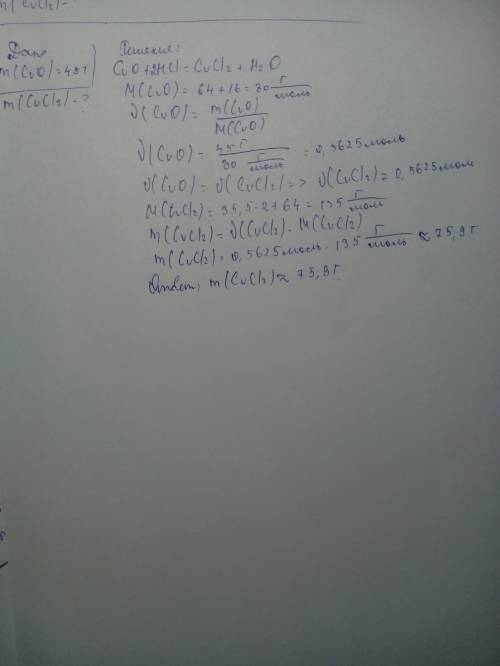 m(CuCl₂)-
Дано
m(CuO)=45г
m(CuCl₂)-?
Решение:
CuO+2HCl=CuCl₂+H₂O
M(CuO)=64+16=80 г/моль
ν(CuO)= m(CuO)/M(CuO)
ν(CuO)= 45г / 80 г/моль = 0,5625моль
ν(CuO)=ν(CuCl₂)=> ν(CuCl₂)=0,5625мол
M(CuCl₂)=35,5·2+64=135 г/моль
m(CuCl₂)=ν(CuCl₂)·M(CuCl₂)
m(CuCl₂)=0,5625моль·135 г/моль ≈75,9г
Ответ: m(CuCl₂)≈75,9г.